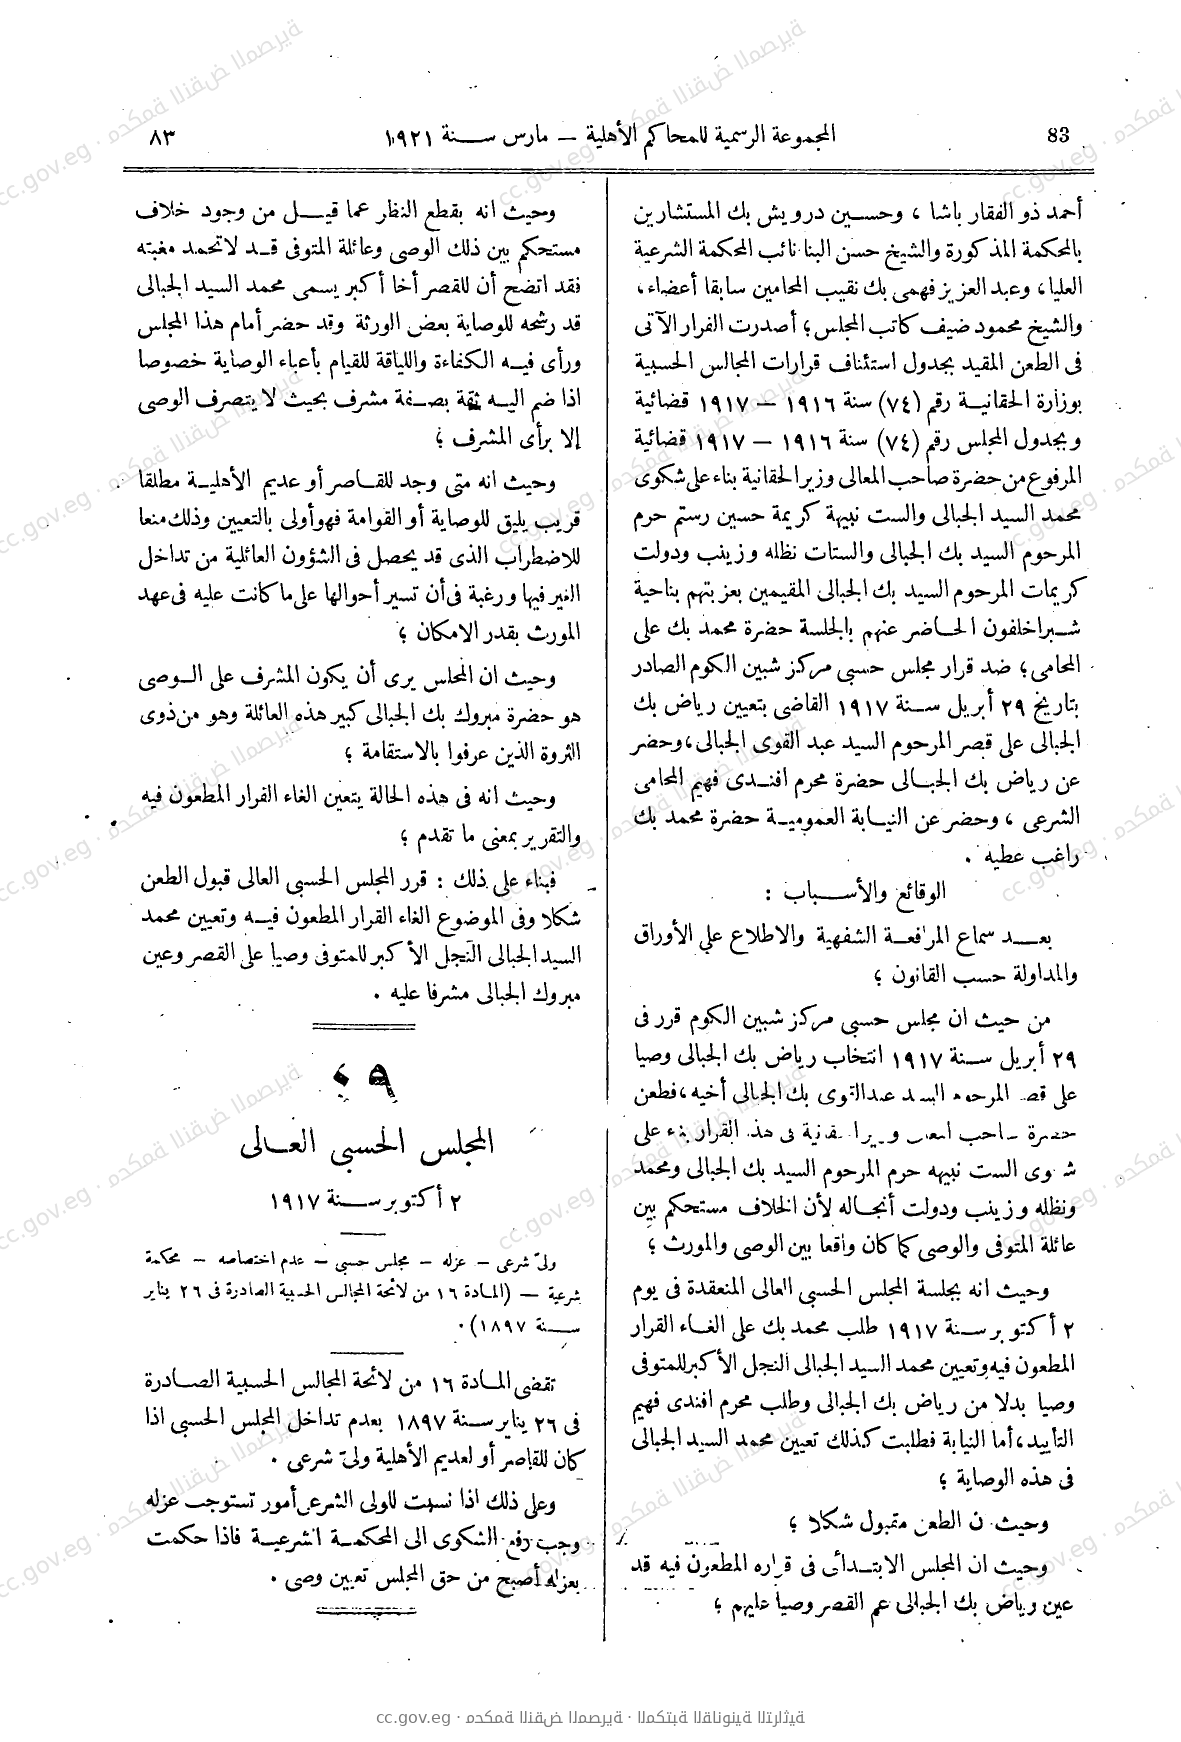 83
المجموعة الرسمية للمحاكم الأهلية – مارس سنة ١٩٢١
٨٣
أحمد ذو الفقار باشا ، وحسين درويش بك المستشارين
بالمحكمة المذكورة والشيخ حسن البنا نائب المحكمة الشرعية
العليا، وعبد العزيز فهمى بك نقيب المحامين سابقا أعضاء،
والشيخ محمود ضيف كاتب المجلس؛ أصدرت القرار الآتى
فى الطعن المقيد بجدول استئناف قرارات المجالس الحسبية
بوزارة الحقانية رقم (٧٤) سنة ١٩١٦ – ١٩١٧ قضائية
وبجدول المجلس رقم (٧٤) سنة ١٩١٦ – ١٩١٧ قضائية
المرفوع من حضرة صاحب المعالى وزير الحقانية بناء على شكوى
محمد السيد الجبالى والست نبيهة كريمة حسين رستم حرم
المرحوم السيد بك الجبالى والستات نظله وزينب ودولت
كريمات المرحوم السيد بك الجبالى المقيمين بعزبتهم بناحية
شبراخلفون الحاضر عنهم بالجلسة حضرة محمد بك على
المحامى؛ ضد قرار مجلس حسبى مركز شبين الكوم الصادر
بتاريخ ٢٩ أبريل سنة ١٩١٧ القاضى بتعيين رياض بك
الجبالى على قصر المرحوم السيد عبد القوى الجبالى، وحضر
عن رياض بك الجبالى حضرة محرم افندى فهيم المحامى
الشرعى ، وحضر عن النيابة العمومية حضرة محمد بك
راغب عطيه .
الوقائع والأسباب :
بعد سماع المرافعة الشفهية والاطلاع على الأوراق
والمداولة حسب القانون ؛
من حيث ان مجلس حسبى مركز شبين الكوم قرر فى
٢٩ أبريل سنة ١٩١٧ انتخاب رياض بك الجبالى وصيا
على قصر المرحوم السيد عبدالقوى بك الجبالى أخيه، فطعن
حضرة صاحب المعالى وزير الحقانية فى هذا القرار بناء على
شكوى الست نبيهه حرم المرحوم السيد بك الجبالى ومحمد
ونظله وزينب ودولت أنجاله لأن الخلاف مستحكم بين
عائلة المتوفى والوصى كما كان واقعا بين الوصى والمورث ؛
وحيث انه بجلسة المجلس الحسبى العالى المنعقدة فى يوم
٢ أكتوبر سنة ١٩١٧ طلب محمد بك على الغاء القرار
المطعون فيه وتعيين محمد السيد الجبالى النجل الأكبر للمتوفى
وصيا بدلا من رياض بك الجبالى وطلب محرم افندى فهيم
التأييد، أما النيابة فطلبت كذلك تعيين محمد السيد الجبالى
فى هذه الوصاية ؛
وحيث ان الطعن مقبول شكلا ؛
وحيث ان المجلس الابتدائى فى قراره المطعون فيه قد
عين رياض بك الجبالى عم القصر وصيا عليهم ؛
وحيث انه بقطع النظر عما قيل من وجود خلاف
مستحكم بين ذلك الوصى وعائلة المتوفى قد لا تحمد مغبته
فقد اتضح أن للقصر أخا أكبر يسمى محمد السيد الجبالى
قد رشحه للوصاية بعض الورثة وقد حضر أمام هذا المجلس
ورأى فيه الكفاءة واللياقة للقيام بأعباء الوصاية خصوصا
اذا ضم اليه ثقة بصفة مشرف بحيث لا يتصرف الوصى
إلا برأى المشرف ؛
وحيث انه متى وجد للقاصر أو عديم الأهلية مطلقا
قريب يليق للوصاية أو القوامة فهو أولى بالتعيين وذلك منعا
للاضطراب الذى قد يحصل فى الشؤون العائلية من تداخل
الغير فيها ورغبة فى أن تسير أحوالها على ما كانت عليه فى عهد
المورث بقدر الامكان ؛
وحيث ان المجلس يرى أن يكون المشرف على الوصى
هو حضرة مبروك بك الجبالى كبير هذه العائلة وهو من ذوى
الثروة الذين عرفوا بالاستقامة ؛
وحيث انه فى هذه الحالة يتعين الغاء القرار المطعون فيه
والتقرير بمعنى ما تقدم ؛
فبناء على ذلك : قرر المجلس الحسبى العالى قبول الطعن
شكلا وفى الموضوع الغاء القرار المطعون فيه وتعيين محمد
السيد الجبالى النجل الأكبر للمتوفى وصيا على القصر وعين
مبروك الجبالى مشرفا عليه .
المجلس الحسبى العالى
٢ أكتوبر سنة ١٩١٧
ولىّ شرعى – عزله – مجلس حسبى – عدم اختصاصه – محكمة
شرعية – (المادة ١٦ من لائحة المجالس الحسبية الصادرة فى ٢٦ يناير
سنة ١٨٩٧).
تقضى المادة ١٦ من لائحة المجالس الحسبية الصادرة
فى ٢٦ يناير سنة ١٨٩٧ بعدم تداخل المجلس الحسبى اذا
كان للقاصر أو لعديم الأهلية ولىّ شرعى .
وعلى ذلك اذا نسبت للولى الشرعى أمور تستوجب عزله
وجب رفع الشكوى الى المحكمة الشرعية فاذا حكمت
بعزله أصبح من حق المجلس تعيين وصى .
cc.gov.eg · محكمة النقض المصرية · المكتبة القانونية التراثية